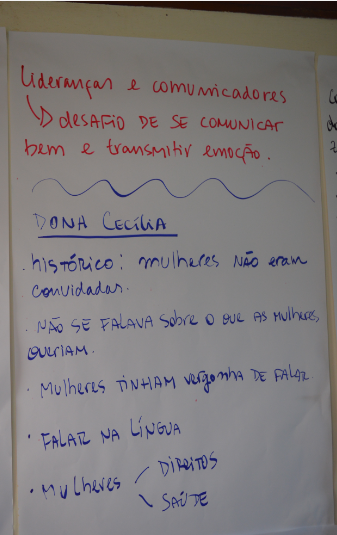 Lideranças e comunicadores
↳ DESAFIO DE SE COMUNICAR
bem e transmitir emoção.
DONA CECÍLIA
. histórico: mulheres NÃO eram
convidadas.
. NÃO SE FALAVA sobre o que AS mulheres
QUERIAM.
. Mulheres TINHAM vergonha DE FALAR.
. FALAR NA LÍNGUA
. Mulheres - DIREITOS
- SAÚDE